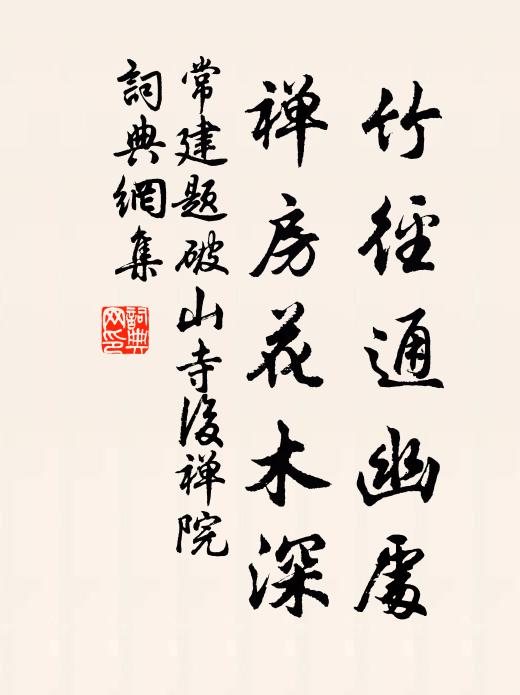 竹徑通幽處
禅房花木深
常建题破山寺後禅院
詞典網集
詞典网印